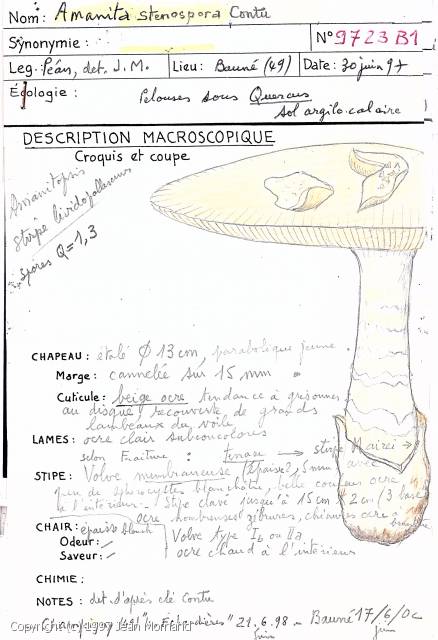 Nom: Amanita stenospora Contu
Synonymie: N° 9723 B1
Leg. Péan, det. J. M. Lieu: Bauné (49) Date: 30 juin 97
Écologie: Pelouses sous Quercus
sol argilo-calcaire
DESCRIPTION MACROSCOPIQUE
Croquis et coupe
Amanitopsis
stirpe lividopallescens
spores Q=1,3
CHAPEAU: étalé Ø 13 cm, parabolique jeune.
Marge: cannelée sur 15 mm
Cuticule: beige ocre tendance à grisonner
au disque, recouverte de grands
lambeaux du voile
LAMES: ocre clair subconcolores
selon Traiture: tenase → stirpe Mairei →
STIPE: Volve membraneuse (épaisse), 5 mm avec
peu de sphérocytes blanchâtre, belle couleur ocre
à l'intérieur. Stipe clavé jusqu'à 15 cm 2 cm (3 base
ocre, nombreuses zébrures, chinures ocre à
CHAIR: épaisse blanche
Odeur: /
Saveur: /
Volve type Ib ou IIa,
ocre chaud à l'intérieur
CHIMIE:
NOTES: det. d'après clé Contu
Champigny (49) 21.6.98 - Bauné 17/6/00
juin juin
Copyright (c) 1997 Jean Mornand